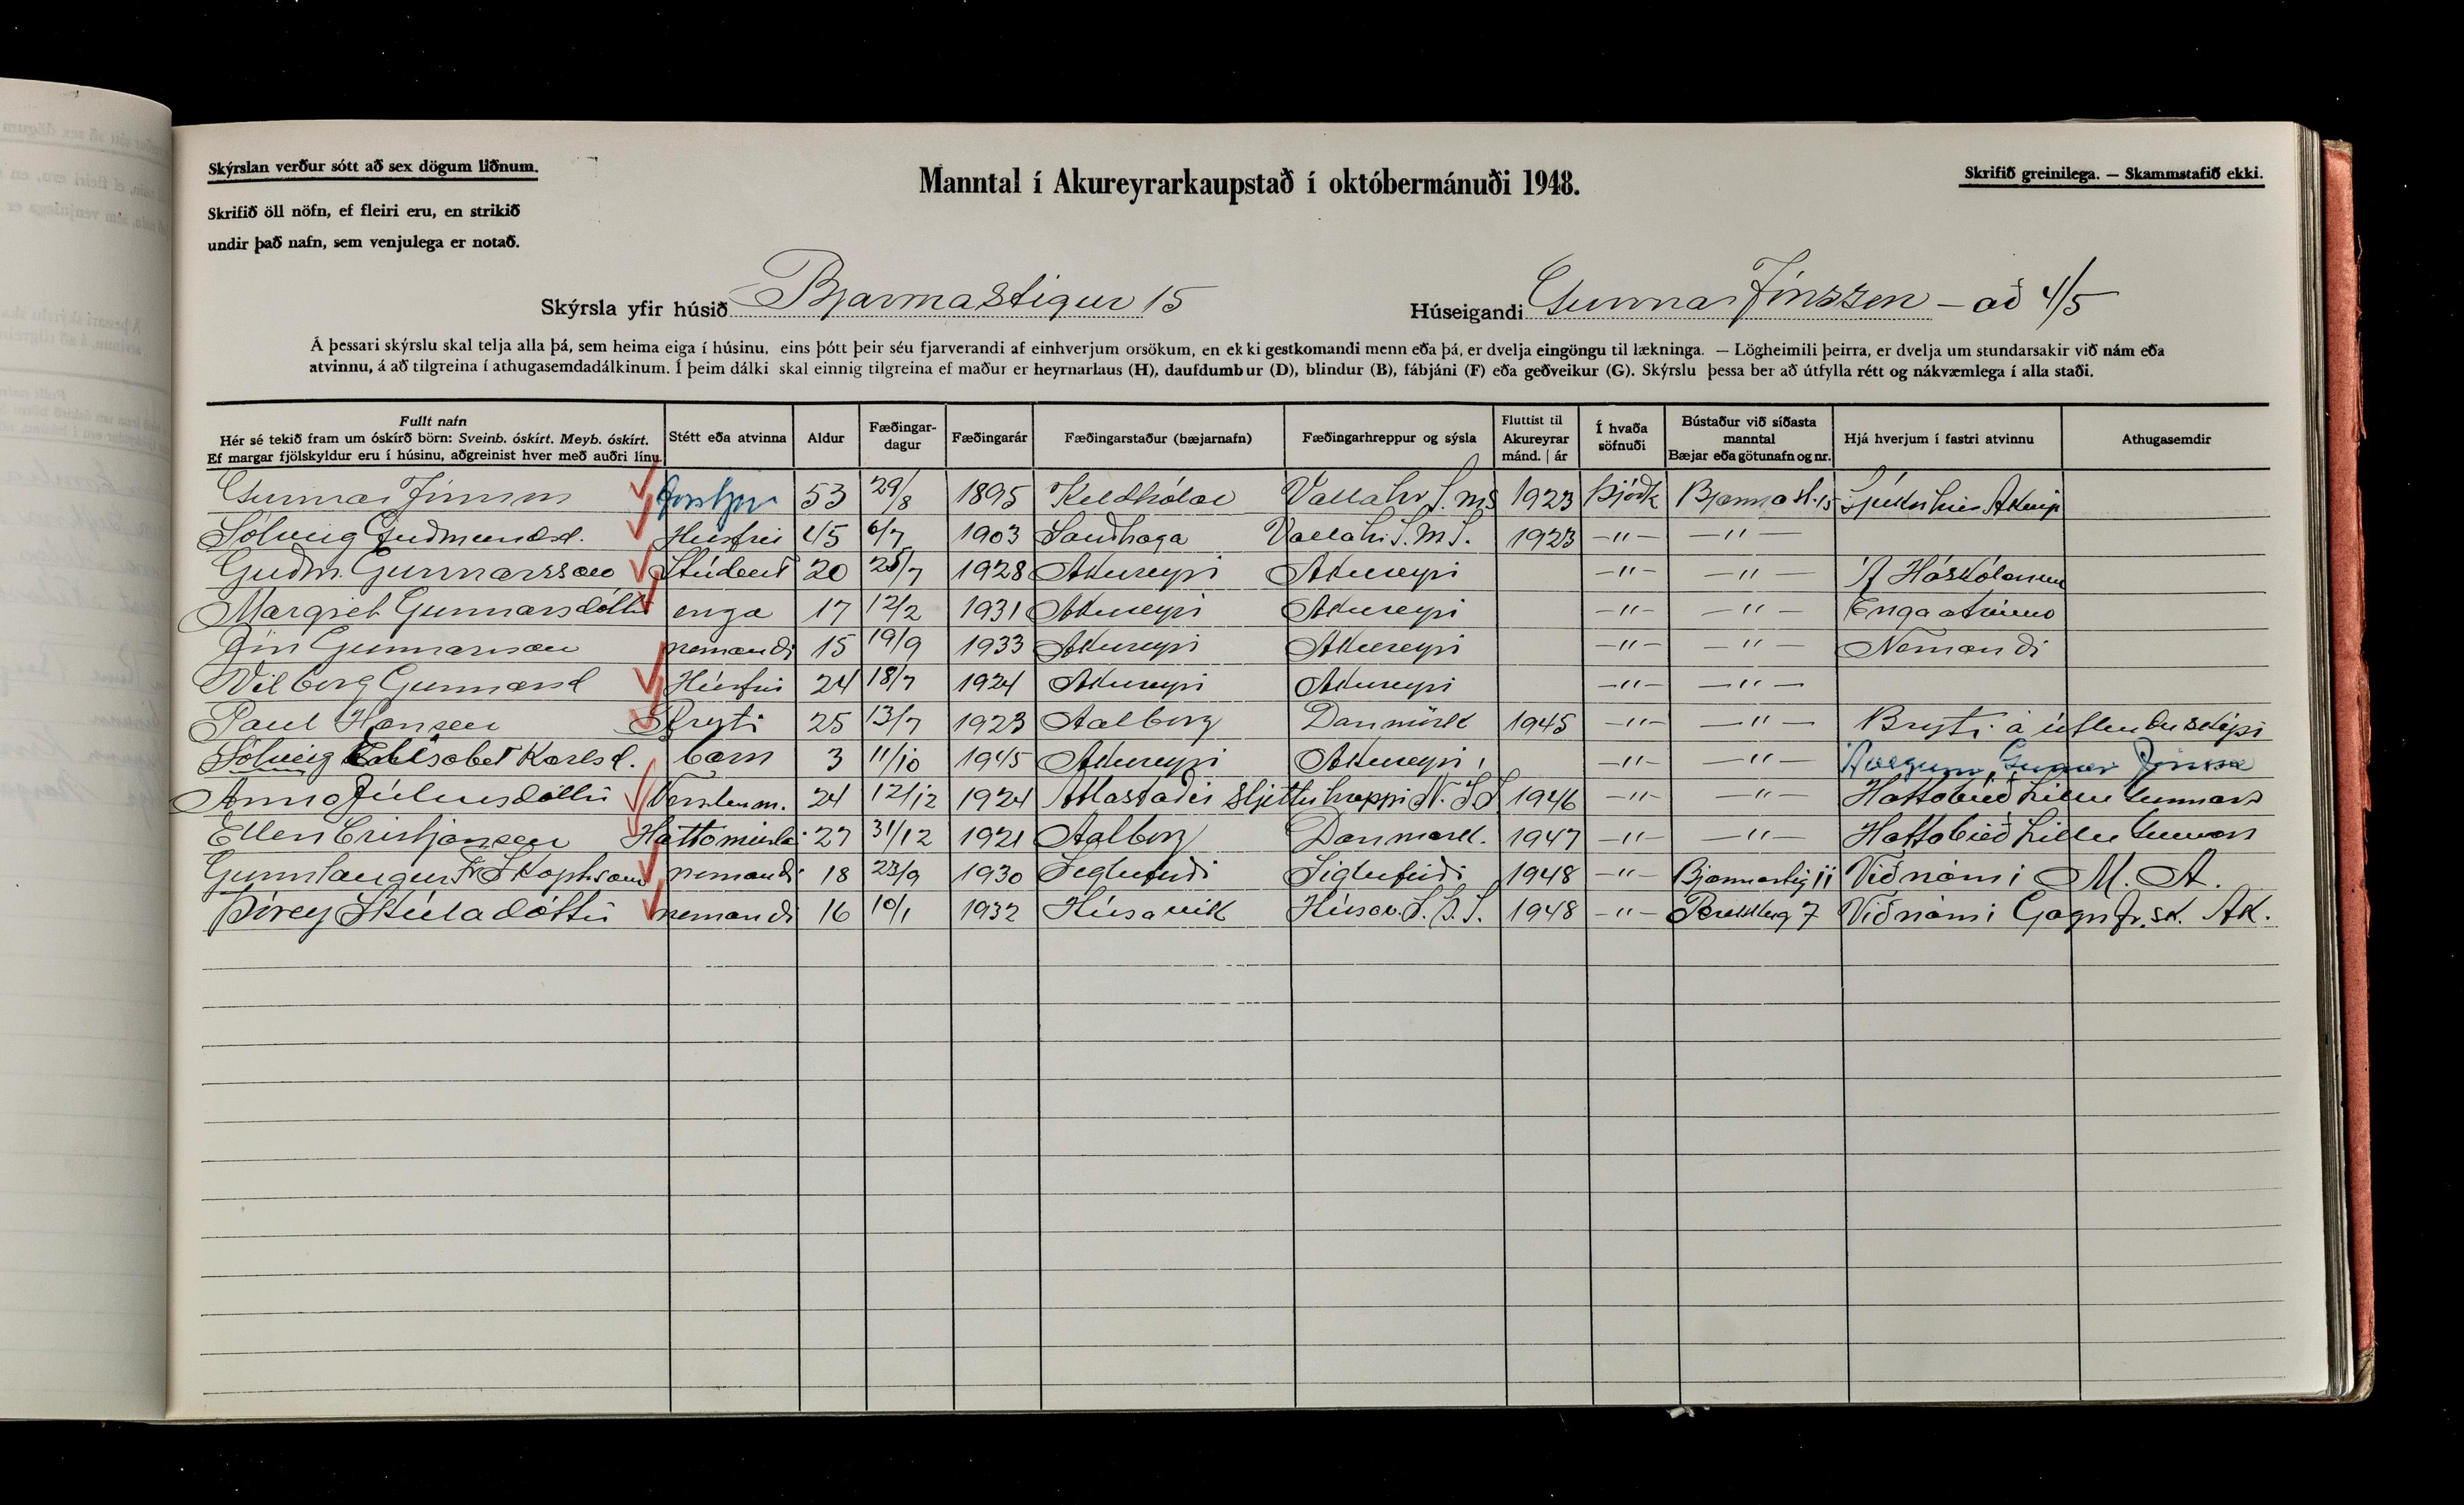 Skýrslan verður sótt að sex dögum liðnum.
Manntal í Akureyrarkaupstað í októbermánuði 1948.
Skrifið greinilega. — Skammstafið ekki.
Skrifið öll nöfn, ef fleiri eru, en strikið
undir það nafn, sem venjulega er notað.
Skýrsla yfir húsið Bjarmastígur 15
Húseigandi Gunnar Jónsson - að 4/5
Á þessari skýrslu skal telja alla þá, sem heima eiga í húsinu, eins þótt þeir séu fjarverandi af einhverjum orsökum, en ekki gestkomandi menn eða þá, er dvelja eingöngu til lækninga. — Lögheimili þeirra, er dvelja um stundarsakir við nám eða
atvinnu, á að tilgreina í athugasemdadálkinum. Í þeim dálki skal einnig tilgreina ef maður er heyrnarlaus (H), daufdumbur (D), blindur (B), fábjáni (F) eða geðveikur (G). Skýrslu þessa ber að útfylla rétt og nákvæmlega í alla staði.
Fullt nafn
Hér sé tekið fram um óskírð börn: Sveinb. óskírt. Meyb. óskírt.
Ef margar fjölskyldur eru í húsinu, aðgreinist hver með auðri línu.
Stétt eða atvinna
Aldur
Fæðingar-
dagur
Fæðingarár
Fæðingarstaður (bæjarnafn)
Fæðingarhreppur og sýsla
Fluttist til
Akureyrar
mánd. | ár
Í hvaða
söfnuði
Bústaður við síðasta
manntal
Bæjar eða götunafn og nr.
Hjá hverjum í fastri atvinnu
Athugasemdir
Gunnar Jónsson 53 29/8 1895 Keldhólar Vallahr S.M.S 1923 Þjóðk Bjarmast. 15 Sjúkrahús Akureyr
Sólveig Guðmundsd. Húsfrú 45 6/7 1903 Sandhaga Vallahr. S.M.S. 1923 -"- -"-
Guðm. Gunnarsson Stúdent 20 25/7 1928 Akureyri Akureyri -"- -"- Á Háskólanum
Margrét Gunnarsdóttir enga 17 12/2 1931 Akureyri Akureyri -"- -"- Enga atvinno
Jón Gunnarsson nemandi 15 19/9 1933 Akureyri Akureyri -"- -"- Nemandi
Vilborg Gunnarsd Húsfrú 24 18/7 1924 Akureyri Akureyri -"- -"-
Paul Hansen Bryti 25 13/7 1923 Aalborg Danmörk 1945 -"- -"- Bryti á útlendu skipi
Sólveig Elísabet Karlsd. barn 3 11/10 1945 Akureyri Akureyri -"- -"- Gunnar Jónsson
Anna Júlíusdóttir Verslunarm. 24 12/12 1924 Atlastaðir Sljettuhreppi N. Ís. 1946 -"- -"- Hattabúð Lillu Gunnars
Ellen Cristjansen Hattameist. 27 31/12 1921 Aalborg Danmark. 1947 -"- -"- Hattabúð Lillu Gunnars
Gunnlaugur Fr. Skaptason nemandi 18 23/9 1930 Siglufirði Siglufirði 1948 -"- Bjarmastíg 11 Við nám í M. A.
Þórey Skúladóttir nemandi 16 10/1 1932 Húsavík Húsav. S.Þ.S. 1948 -"- 7 Við nám i Gagnfr.sk. Ak.